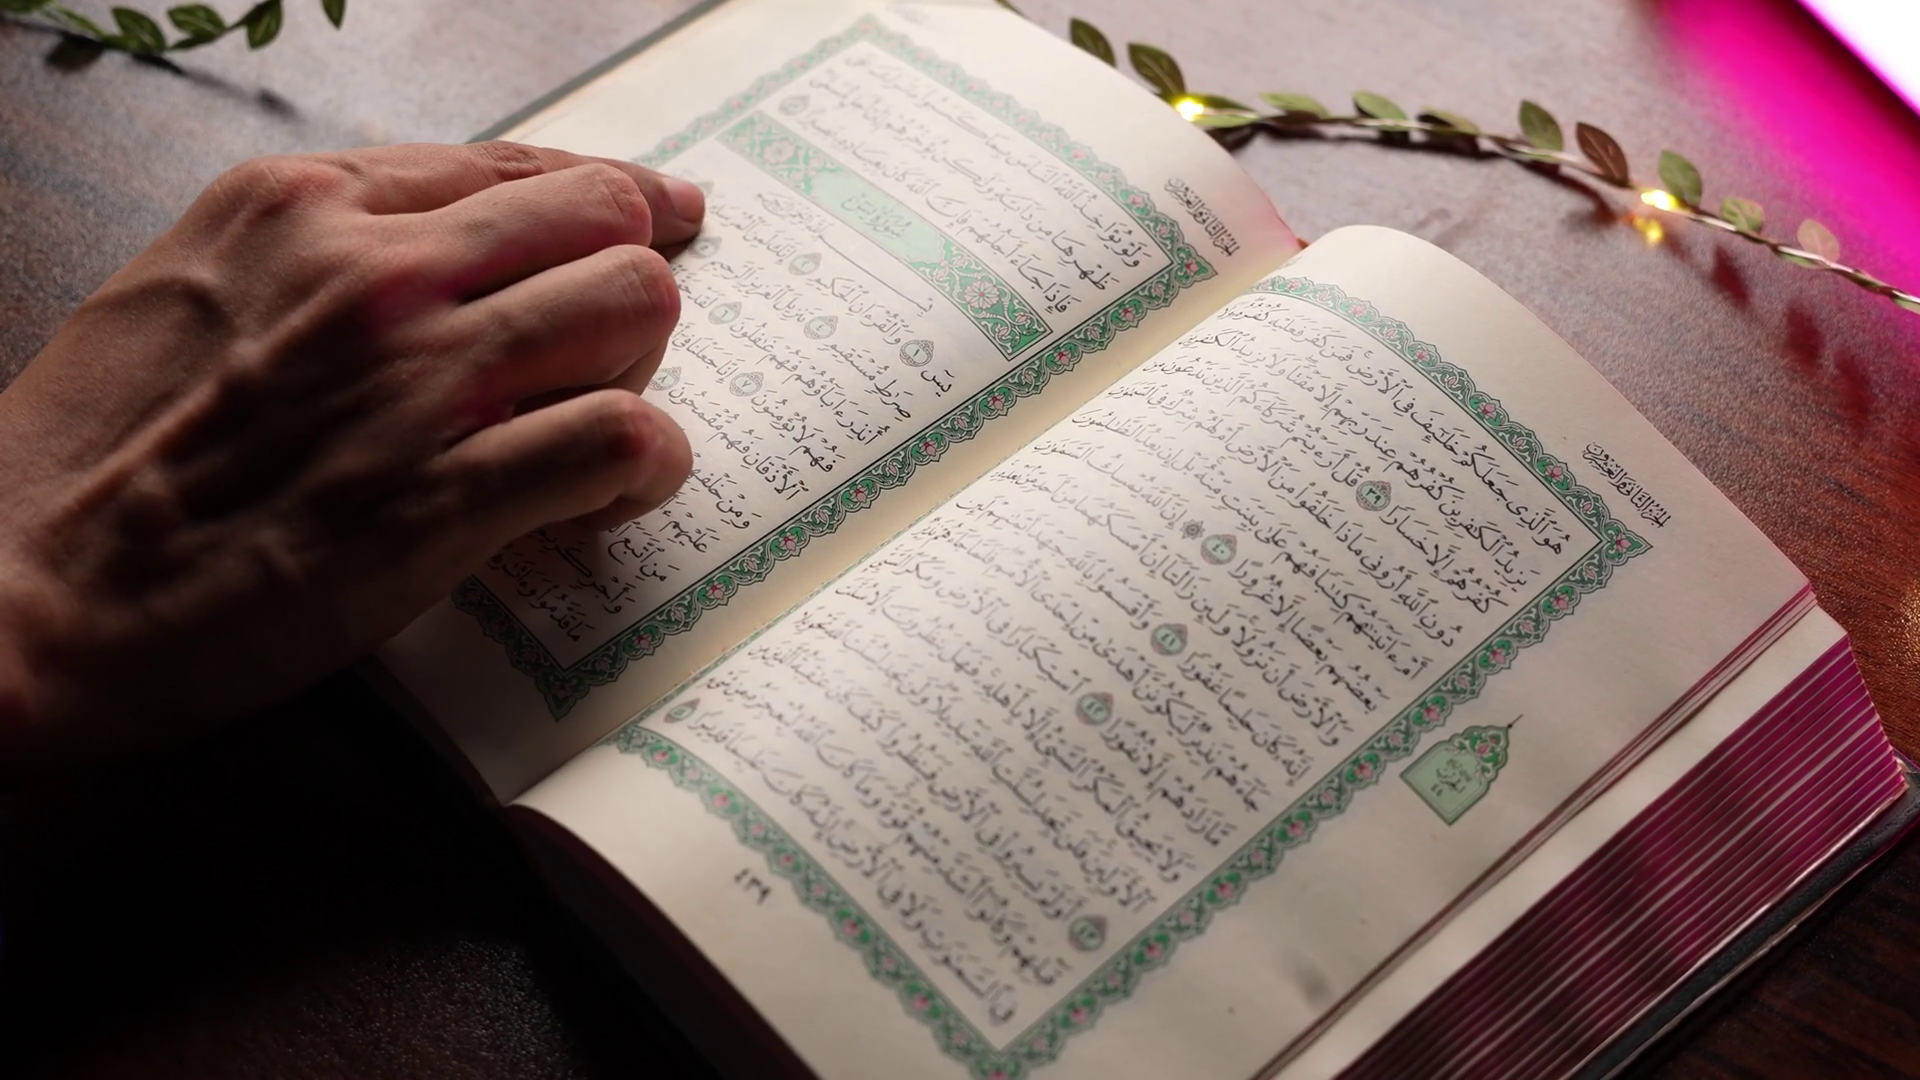 الجزء الثاني والعشرون
هُوَ ٱلَّذِى جَعَلَكُمْ خَلَـٰٓئِفَ فِى ٱلْأَرْضِ ۚ فَمَن كَفَرَ فَعَلَيْهِ كُفْرُهُۥ ۖ وَلَا
يَزِيدُ ٱلْكَـٰفِرِينَ كُفْرُهُمْ عِندَ رَبِّهِمْ إِلَّا مَقْتًا ۖ وَلَا يَزِيدُ ٱلْكَـٰفِرِينَ
كُفْرُهُمْ إِلَّا خَسَارًا ٣٩ قُلْ أَرَءَيْتُمْ شُرَكَآءَكُمُ ٱلَّذِينَ تَدْعُونَ مِن
دُونِ ٱللَّهِ أَرُونِى مَاذَا خَلَقُوا۟ مِنَ ٱلْأَرْضِ أَمْ لَهُمْ شِرْكٌ فِى ٱلسَّمَـٰوَٰتِ
أَمْ ءَاتَيْنَـٰهُمْ كِتَـٰبًا فَهُمْ عَلَىٰ بَيِّنَتٍ مِّنْهُ ۚ بَلْ إِن يَعِدُ ٱلظَّـٰلِمُونَ
بَعْضُهُم بَعْضًا إِلَّا غُرُورًا ٤٠ ۞ إِنَّ ٱللَّهَ يُمْسِكُ ٱلسَّمَـٰوَٰتِ
وَٱلْأَرْضَ أَن تَزُولَا ۚ وَلَئِن زَالَتَآ إِنْ أَمْسَكَهُمَا مِنْ أَحَدٍ مِّنۢ بَعْدِهِۦٓ ۚ
إِنَّهُۥ كَانَ حَلِيمًا غَفُورًا ٤١ وَأَقْسَمُوا۟ بِٱللَّهِ جَهْدَ أَيْمَـٰنِهِمْ لَئِن
جَآءَهُمْ نَذِيرٌ لَّيَكُونُنَّ أَهْدَىٰ مِنْ إِحْدَى ٱلْأُمَمِ ۖ فَلَمَّا جَآءَهُمْ نَذِيرٌ
مَّا زَادَهُمْ إِلَّا نُفُورًا ٤٢ ٱسْتِكْبَارًا فِى ٱلْأَرْضِ وَمَكْرَ ٱلسَّيِّئِ ۚ
وَلَا يَحِيقُ ٱلْمَكْرُ ٱلسَّيِّئُ إِلَّا بِأَهْلِهِۦ ۚ فَهَلْ يَنظُرُونَ إِلَّا سُنَّتَ
ٱلْأَوَّلِينَ ۚ فَلَن تَجِدَ لِسُنَّتِ ٱللَّهِ تَبْدِيلًا ۖ وَلَن تَجِدَ لِسُنَّتِ ٱللَّهِ تَحْوِيلًا
٤٣ أَوَلَمْ يَسِيرُوا۟ فِى ٱلْأَرْضِ فَيَنظُرُوا۟ كَيْفَ كَانَ عَـٰقِبَةُ ٱلَّذِينَ مِن
قَبْلِهِمْ وَكَانُوٓا۟ أَشَدَّ مِنْهُمْ قُوَّةً ۚ وَمَا كَانَ ٱللَّهُ لِيُعْجِزَهُۥ مِن شَىْءٍ
فِى ٱلسَّمَـٰوَٰتِ وَلَا فِى ٱلْأَرْضِ ۚ إِنَّهُۥ كَانَ عَلِيمًا قَدِيرًا ٤٤
٤٣٩
الجزء الثاني والعشرون
وَلَوْ يُؤَاخِذُ ٱللَّهُ ٱلنَّاسَ بِمَا كَسَبُوا۟ مَا تَرَكَ عَلَىٰ
ظَهْرِهَا مِن دَآبَّةٍ وَلَـٰكِن يُؤَخِّرُهُمْ إِلَىٰٓ أَجَلٍ مُّسَمًّى ۖ
فَإِذَا جَآءَ أَجَلُهُمْ فَإِنَّ ٱللَّهَ كَانَ بِعِبَادِهِۦ بَصِيرًۢا ٤٥
سُورَةُ يسٓ
بِسْمِ ٱللَّهِ ٱلرَّحْمَـٰنِ ٱلرَّحِيمِ
يسٓ ١ وَٱلْقُرْءَانِ ٱلْحَكِيمِ ٢ إِنَّكَ لَمِنَ ٱلْمُرْسَلِينَ
صِرَٰطٍ مُّسْتَقِيمٍ ٤ تَنزِيلَ ٱلْعَزِيزِ ٱلرَّحِيمِ
أُنذِرَ ءَابَآؤُهُمْ فَهُمْ غَـٰفِلُونَ ٦ لَقَدْ حَقَّ
فَهُمْ لَا يُؤْمِنُونَ ٧ إِنَّا جَعَلْنَا فِىٓ
ٱلْأَذْقَانِ فَهُم مُّقْمَحُونَ ٨
وَمِنْ خَلْفِهِمْ
عَلَيْهِمْ
مَنِ ٱتَّبَعَ
وَأَجْرٍ كَرِيمٍ
مَا قَدَّمُوا۟ وَءَاثَـٰرَهُمْ